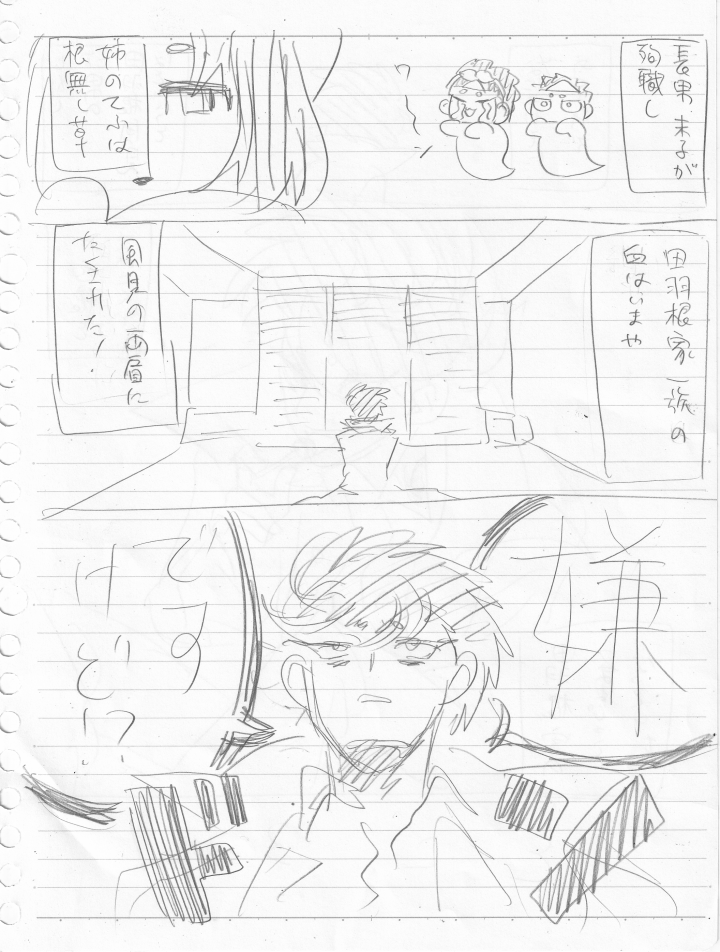 長男 末子が
殉職し
姉のてふは
根無し草
田羽根家一族の
血はいまや
風見の両肩に
たくされた!
嫌
です
けど!?